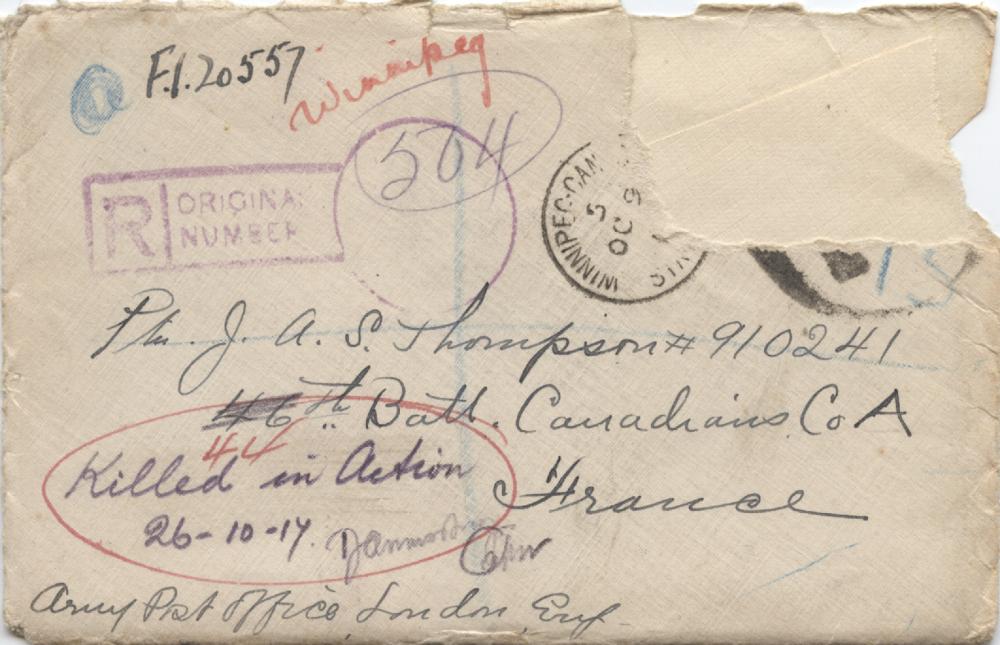 F.I. 20557
Winnipeg
504
R ORIGINAL
NUMBER
WINNIPEG·CAN
5
OC 9
Pte. J. A. S. Thompson # 910241
46th Batt. Canadians Co A
44
Killed in Action
26-10-17.
France
Army Post Office, London, Eng.